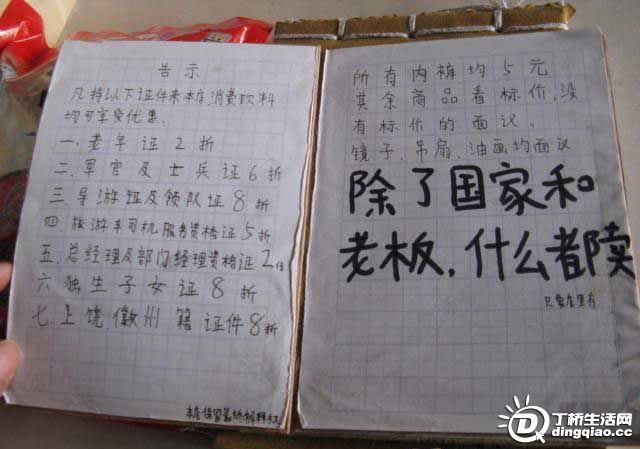 告示
凡持以下证件来本店消费饮料
均可享受优惠.
一.老年证2折
二.军官及士兵证6折
三.导游证及领队证8折
四.旅游车司机服务资格证5折
五.总经理及部门经理资格证2倍
六.独生子女证8折
七.上饶徽州籍证件8折
本店保留最终解释权
所有内裤均5元
其余商品看标价,没
有标价的面议。
镜子、吊扇、油画均面议
除了国家和
老板,什么都卖
只要店里有
丁桥生活网
dingqiao.cc